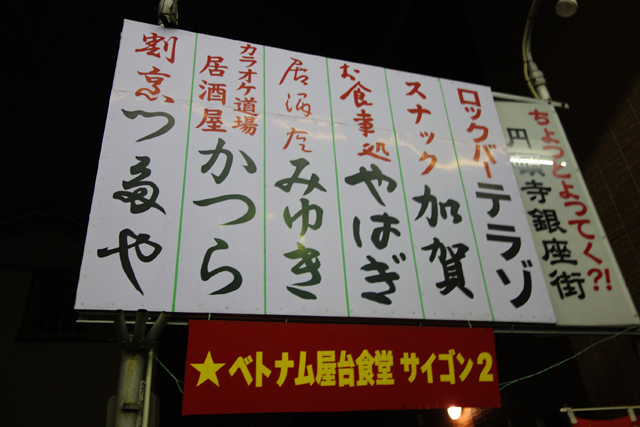 ちょっとよってく?!
円頓寺銀座街
ロックバーテラゾ
スナック 加賀
お食事処 やはぎ
居酒屋 みゆき
カラオケ道場
居酒屋 かつら
割烹
★ベトナム屋台食堂 サイゴン2